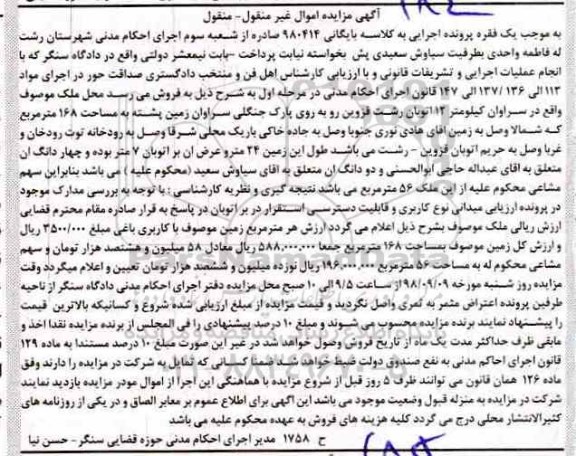 آگهی مزایده اموال غیر منقول- منقول
به موجب یک فقره پرونده اجرایی به کلاسه بایگانی ۹۸۰۴۱۴ صادره از شعبه سوم اجرای احکام مدنی شهرستان رشت
له فاطمه واحدی بطرفیت سیاوش سعیدی پش بخواسته نیابت پرداخت -بابت نیمعشر دولتی واقع در دادگاه سنگر که با
انجام عملیات اجرایی و تشریفات قانونی و با ارزیابی کارشناس اهل فن و منتخب دادگستری صداقت حور در اجرای مواد
۱۱۳ الی ۱۳۶ /۱۳۷ الی ۱۴۷ قانون اجرای احکام مدنی در مرحله اول به شرح ذیل به فروش می رسد محل ملک موصوف
واقع در سراوان کیلومتر ۱۳اتوبان رشت قزوین رو به روی پارک جنگلی سراوان زمین پشته به مساحت ۱۶۸ مترمربع
که شمالا وصل به زمین اقای هادی نوری جنوبا وصل به جاده خاکی باریک محلی شرقا وصل به رودخانه توت رودخان و
غربا وصل به حریم اتوبان قزوین - رشت می باشد طول این زمین ۲۴ مترو عرض ان بر اتوبان ۷ متر بوده و چهار دانگ ان
متعلق به اقای عبداله حاجی ابوالحسنی و دو دانگ ان متعلق به اقای سیاوش سعید (محکوم علیه ) می باشد بنابراین سهم
مشاعی محکوم علیه از این ملک ۵۶ مترمربع می باشد نتیجه گیری و نظریه کارشناسی : با توجه به بررسی مدارک موجود
در پرونده ارزیابی میدانی نوع کاربری و قابلیت دسترسی استقرار در بر اتوبان در پاسخ به قرار صادره مقام محترم قضایی
ارزش ریالی ملک موصوف بشرح ذیل اعلام می گردد ارزش هر مترمربع زمین موصوف با کاربری باغی مبلغ ۳۵۰۰/۰۰۰ ریال
و ارزش کل زمین موصوف بمساحت ۱۶۸ مترمربع جمعا ۵۸۸,۰۰۰,۰۰۰ ریال معادل ۵۸ میلیون و هشتصد هزار تومان و سهم
مشاعی محکوم له به مساحت ۵۶ مترمربع ۱۹۶,۰۰۰,۰۰۰ ریال نوزده میلیون و ششصد هزار تومان تعیین و اعلام میگردد وقت
مزایده روز شنبه مورخه ۹۸/۰۹/۰۹ از ساعت ۹/۵ الی ۱۰ صبح محل مزایده دفتر اجرای احکام مدنی دادگاه سنگر از ناحیه
طرفین پرونده اعتراض مثمر به ثمری واصل نگردید و قیمت مزایده از مبلغ ارزیابی شده شروع و کسانیکه بالاترین قیمت
را پیشنهاد نمایند برنده مزایده محسوب می شوند و مبلغ ۱۰ درصد پیشنهادی را فی المجلس از برنده مزایده نقدا اخذ و
مابقی ظرف حداکثر مدت یک ماه از تاریخ فروش وصول خواهد شد در غیر این صورت مبلغ ۱۰ درصد مستندا به ماده ۱۲۹
قانون اجرای احکام مدنی به نفع صندوق دولت ضبط خواهد شد ضمنا کسانی که تمایل به شرکت در مزایده را دارند وفق
ماده ۱۲۶ همان قانون می توانند ظرف ۵ روز قبل از شروع مزایده با هماهنگی این اجرا از اموال مودر مزایده بازدید نمایند
شرکت در مزایده به منزله قبول وضعیت موجود می باشد این اگهی برای اطلاع عموم بر معابر الصاق و در یکی از روزنامه های
کثیرالانتشار محلی درج می گردد کلیه هزینه های فروش به عهده محکوم علیه می باشد
ح ۱۷۵۸ مدیر اجرای احکام مدنی حوزه قضایی سنگر- حسن نیا